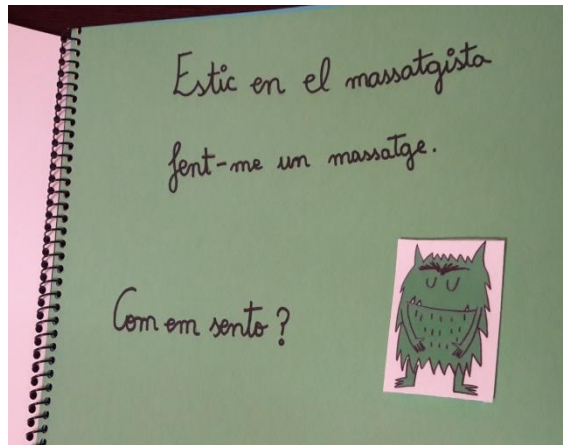 Estic en el massatgista
fent-me un massatge.
Com em sento?